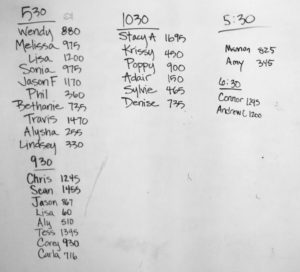 530
Wendy 880
Melissa 975
Lisa 1200
Sonia 975
Jason F 1170
Phil 360
Bethanie 735
Travis 1470
Alysha 255
Lindsey 330
930
Chris 1245
Sean 1455
Jason 867
Lisa 60
Aly 510
Tess 1395
Corey 930
Carla 716
1030
Stacy A 1695
Krissy 450
Poppy 900
Adair 150
Sylvie 465
Denise 735
5:30
825
Amy 345
6:30
Connor 1245
Andrew C 1200